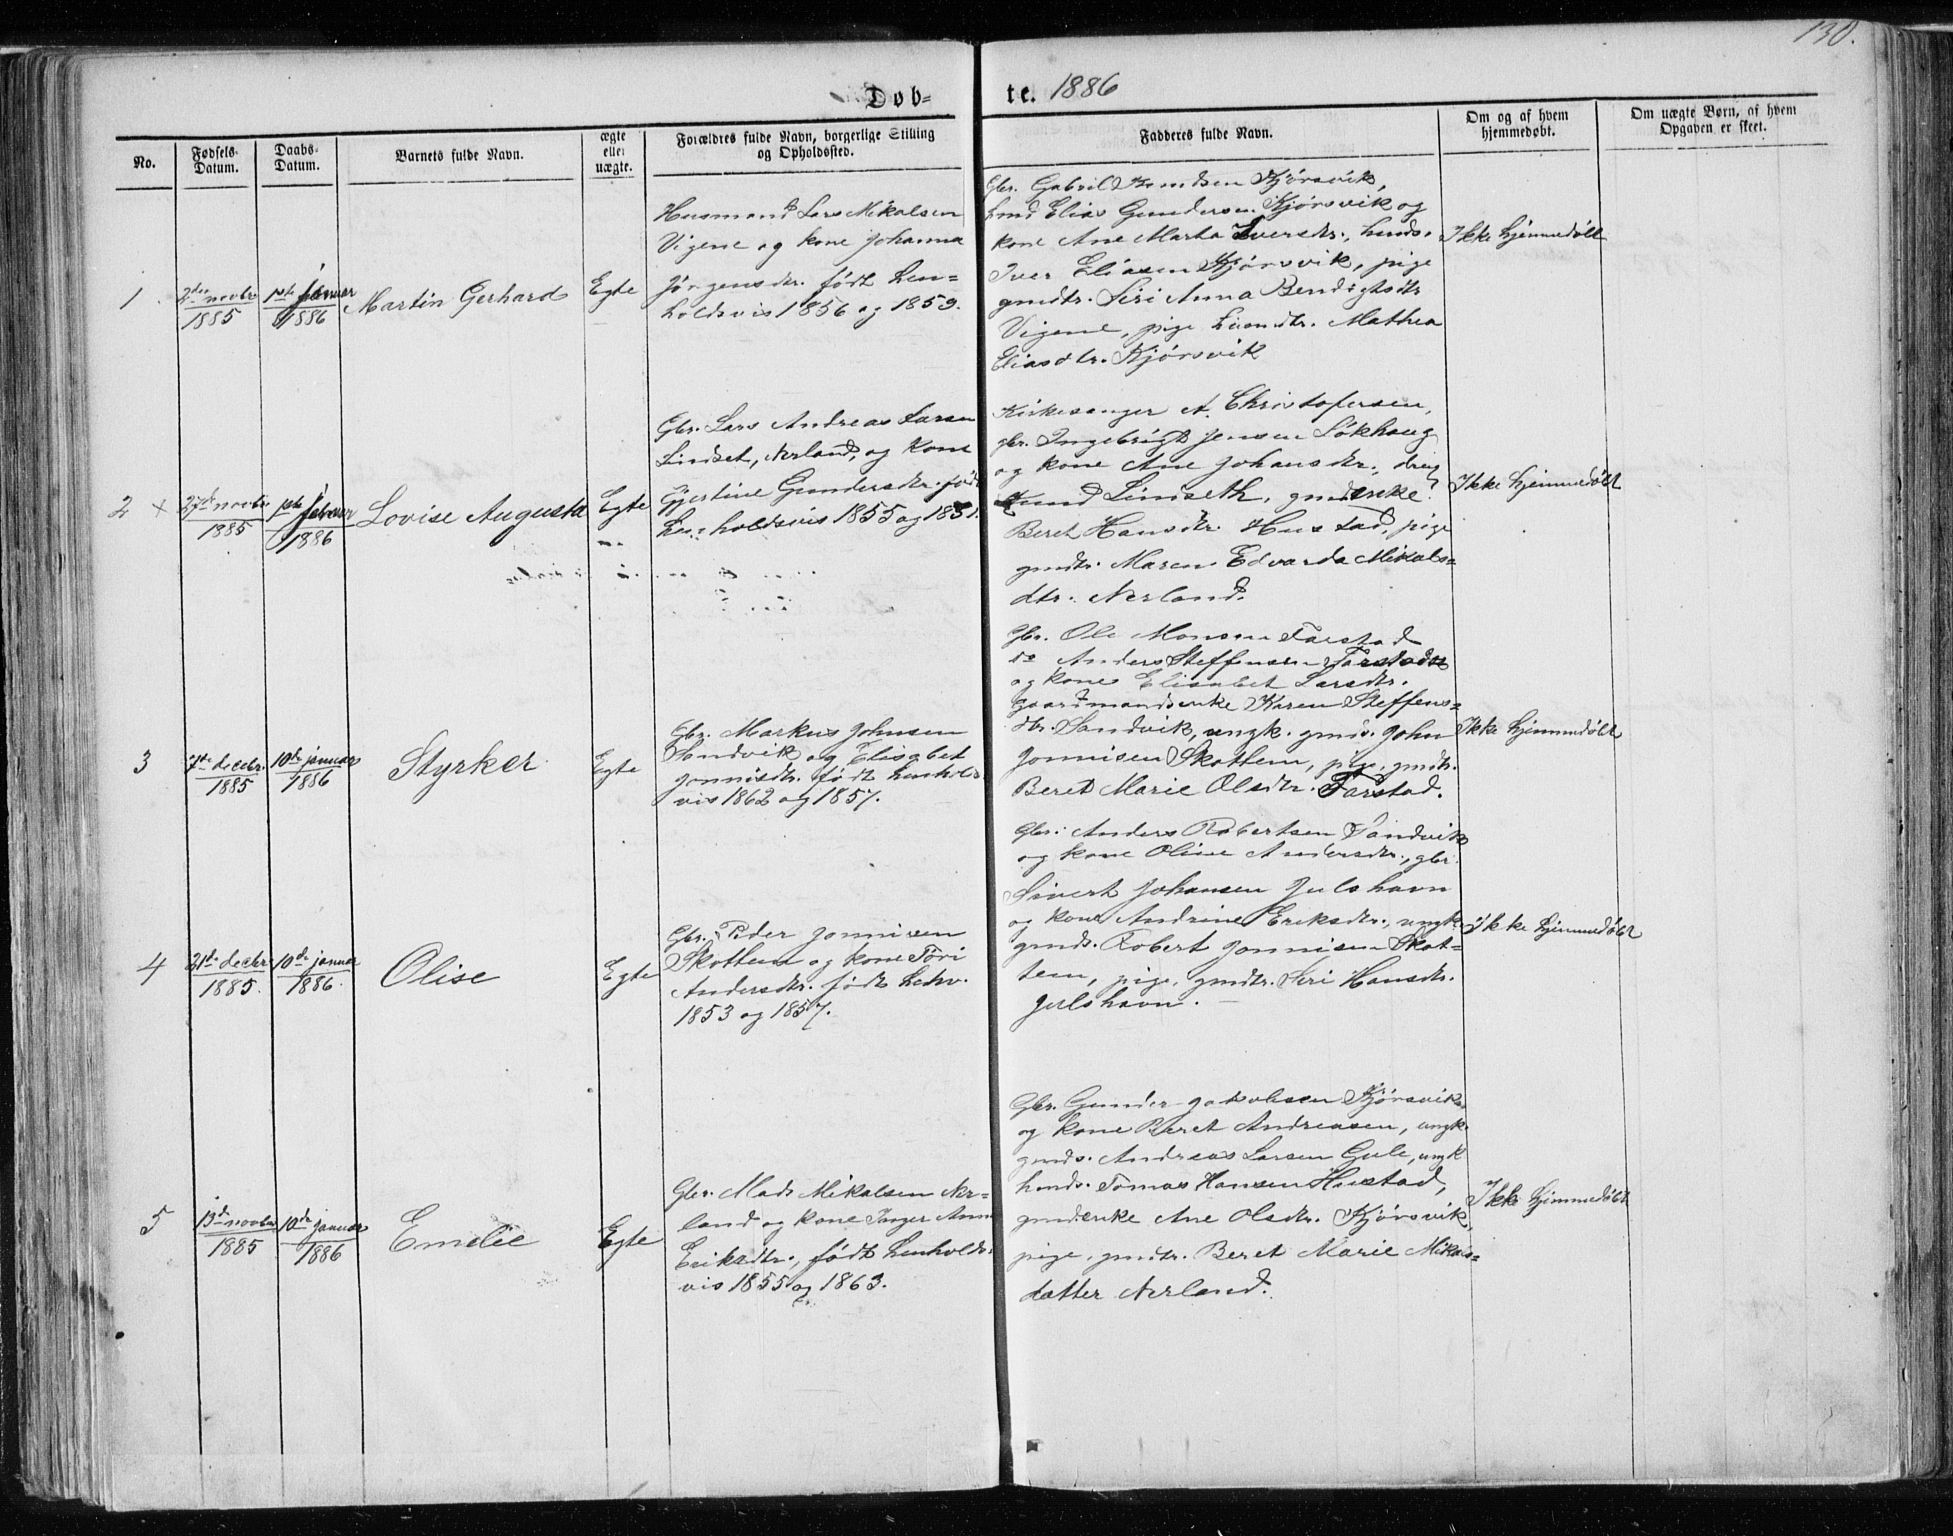 130.
Døb-
te. 1886
No.
Fødsels-
Datum.
Daabs-
Datum.
Barnets fulde Navn.
ægte
eller
uægte.
Forældres fulde Navn, borgerlige Stilling
og Opholdssted.
Fadderes fulde Navn.
Om og af hvem
hjemmedøbt.
Om uægte Børn, af hvem
Opgaven er skeet.
1
2den novbr
1885
1ste januar
1886
Martin Gerhard
Egte
Husmand Lars Mikalsen
Vigene og kone Johanna
Jørgensdtr. født hen=
holdsvis 1856 og 1859.
Gbr. Gabriel Knudsen Kjørsvik,
hmd Elias Gundersen Kjørsvik og
kone Ane Marta Iversdtr., hmds.
Iver Eliasen Kjørsvik, pige
gmdtr. Siri Anna Bendigtsdtr
Vigene, pige husmdtr. Mathea
Eliasdtr. Kjørsvik
Ikke hjemmedøbt
2 x
27de novbr
1885
1ste januar
1886
Lovise Augusta
Egte
Gbr. Lars Andreas Larsen
Lindset, Nerland, og kone
Gjertine Gundersdtr. født
henholdsvis 1855 og 1851.
Kirkesanger A. Christofersen,
gbr. Ingebrigt Jensen Løkhaug
og kone Ane Johansdtr. dreng
Knud Linseth, gmdenke
Beret Hansdtr. Hustad, pige
gmdtr. Maren Edvarda Mikals=
dtr. Nerland.
Ikke hjemmedøbt
3
7de decbr.
1885
10de januar
1886
Styrker
Egte
Gbr. Markus Johnsen
Sandvik og Elisabet
Jonnisdtr. født henholds
vis 1862 og 1857.
Gbr. Ole Monsen Farstad
do Anders Steffensen Farstad
og kone Elisabet Larsdtr.
gaardmandsenke Karen Steffens=
dtr. Sandvik, ungk. gmds. John
Jonnisen Skottem, pige, gmdtr.
Beret Marie Olsdtr. Farstad.
Ikke hjemmedøbt
4
21de decbr.
1885.
10de januar
1886.
Olise
Egte
Gbr. Peder Jonnisen
Skottem og kone Føri
Andersdtr. født hehv.
1853 og 1857.
Gbr. Anders Robertsen Sandvik
og kone Oline Andersdtr., gbr.
Sivert Johansen Julshavn
og kone Andrine Eriksdtr., ungk.
gmds. Robert Jonnisen Skot=
tem, pige, gmdtr. Siri Hansdtr.
Julshavn.
Ikke hjemmedøbt
5
13de novbr
1885
10de januar
1886
Emelie
Egte
Gbr. Mads Mikalsen Ner=
land og kone Inger Anna
Eriksdtr., født henholds=
vis 1855 og 1863.
Gbr. Gunder Jakobsen Kjørsvik
og kone Beret Andreasen, ungk.
gmds. Andreas Larsen Gule, ungk
hmds. Tomas Hansen Hustad,
gmdenke Ane Olsdtr. Kjørsvik,
pige, gmdtr. Beret Marie Mikals=
datter Nerland.
Ikke hjemmedøbt